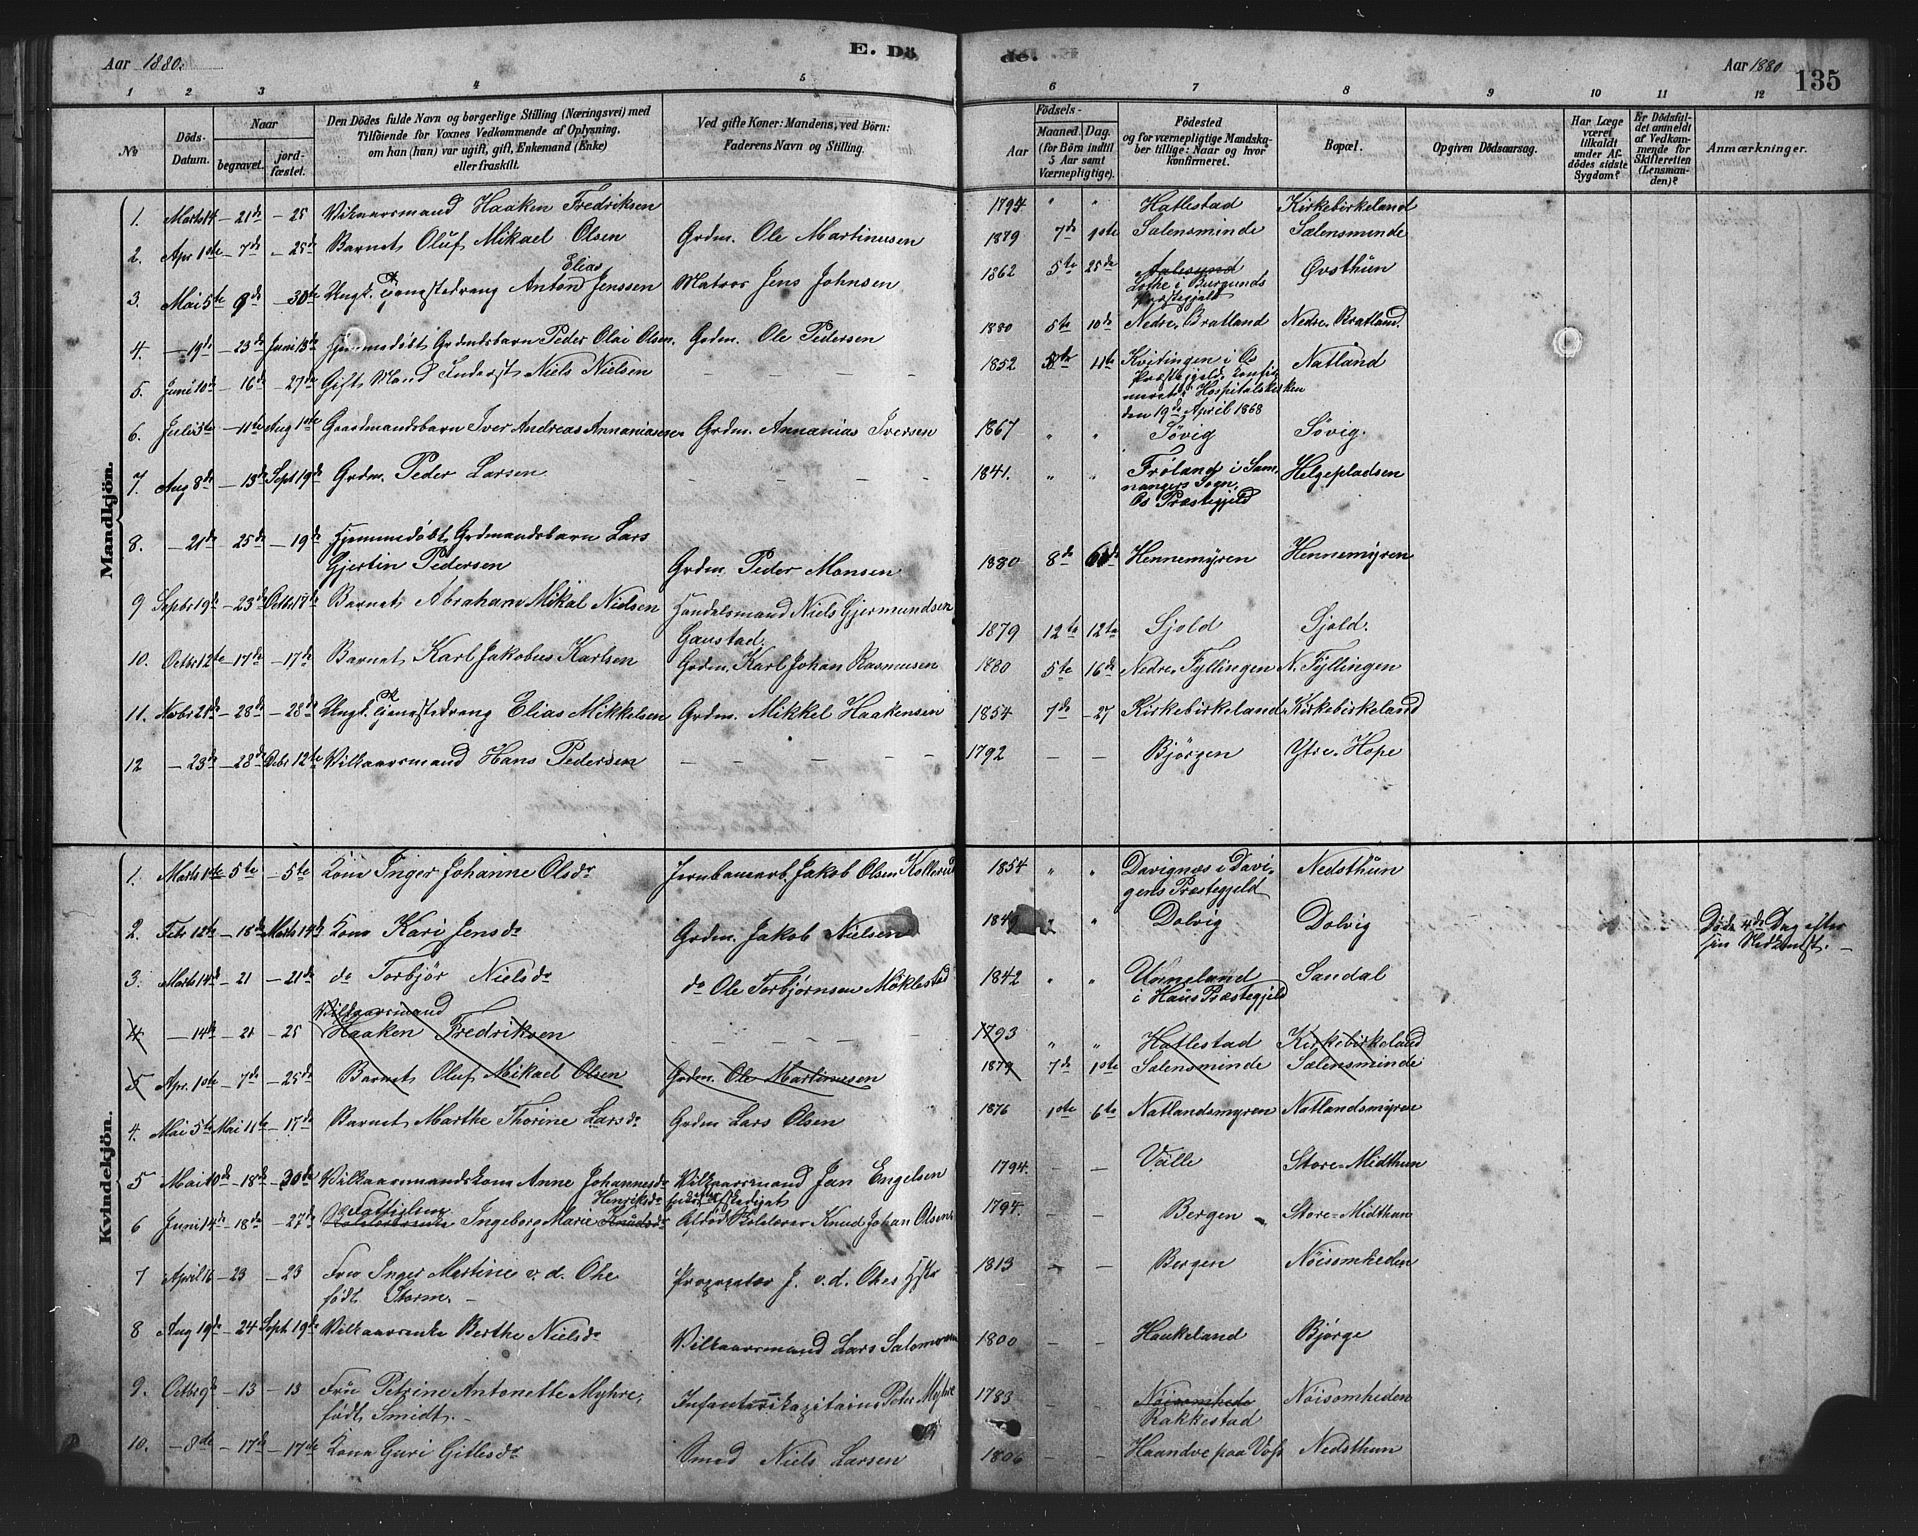 Aar 1880.
E. Dö
de.
Aar 1880
135
1 2 3 4 5 6 7 8 9 10 11 12
№
Döds-Datum.
Naar
begravet.
jord-fæstet.
Den Dödes fulde Navn og borgerlige Stilling (Næringsvei) med
Tilföiende for Voxnes Vedkommende af Oplysning,
om han (hun) var ugift, gift, Enkemand (Enke)
eller fraskilt.
Ved gifte Koner: Mandens, ved Börn:
Faderens Navn og Stilling.
Födsels-
Aar
Maaned. Dag.
(for Börn indtil
5 Aar samt
Værnepligtige).
Födested
og for værnepligtige Mandska-
ber tillige: Naar og hvor
konfirmeret.
Bopæl.
Opgiven Dödsaarsag.
Har Læge
været
tilkaldt
under Af-
dödes sidste
Sygdom?
Er Dödsfal-
det anmeldt
af Vedkom-
mende for
Skifteretten
(Lensman-
den)?
Anmærkninger.
Mandkjön.
1. Marts 14 – 21de – 25 Vilkaarsmand Haaken Fredriksen 1794 " " Hatlestad Kirkebirkeland
2. Apr 1ste – 7de – 25de Barnet Oluf Mikael Olsen Grdm. Ole Martinusen 1879 7de 1ste Sælensminde Sælensminde
3. Mai 5te 9de – 30te Ungk. Tjenestedreng Anton Elias Jenssen Matros Jens Johnsen 1862 5te 25de Aalesund
Lothe i Burgunds
Præstegjeld Øvsthun
4. – 19de – 23de Juni 13de Hjemmedøbt Grdmdsbarn Peder Olai Olsen Grdm. Ole Pedersen 1880 5te 10de Nedre Bratland Nedre Bratland.
5. Juni 10de – 16de – 27de Gift Mand Inderst Niels Nielsen – – – 1852 5te 11te Kvitingen i Os
Præstegjeld, konfir-
meret i Hospitalskirken
den 19de April 1868 Natland
6. Juli 5te – 11te Aug 1ste Gaardmandsbarn Iver Andreas Annaniasen Grdm. Annanias Iversen 1867 " " Søvig Søvig.
7. Aug 8de – 13de Sept 19de Grdm. Peder Larsen – – – 1841. " " Frøland i Sam-
nangers Sogn,
Os Præstegjeld Helgepladsen
8. – 21de 25de – 19de Hjemmedøbt Grdmandsbarn Lars
Gjertin Pedersen Grdm. Peder Monsen 1880 8de 6de Hennemyren Hennemyren
9 Septbr 19de – 23de Octbr 17de Barnet Abraham Mikal Nielsen Handelsmand Niels Gjermundsen
Gaustad 1879 12te 12te Sjold Sjold.
10. Octbr 12te – 17de – 17de Barnet Karl Jakobus Karlsen Grdm. Karl Johan Rasmusen 1880 5te 16de Nedre Fyllingen N. Fyllingen
11. Novbr 21de – 28de – 28de Ungk. Tjenestedreng Elias Mikkelsen Grdm. Mikkel Haakensen 1854 7de – 27 Kirkebirkeland Kirkebirkeland
12 – 23de – 28de Debr 12te Vilkaarsmand Hans Pedersen – – – 1792 – – Bjørgen Ytre Hope
Kvindekjön.
1. Marts 1ste 5te – 5te Kone Inger Johanne Olsdr Jernbanearb. Jakob Olsen Kollerud 1854 " " Davignæs i Davi-
gens Præstegjeld Nedsthun
2. Febr 12te – 18de Marts 14de Kone Kari Jensdr Grdm. Jakob Nielsen 1849 " " Dolvig Dolvig Døde 4de Dag efter
sin Nedkomst. –
3. Marts 14de – 21 – 21de do Torbjør Nielsdr do Ole Torbjørnsen Møklestad 1842 " " Unneland
i Haus Præstegjeld Sandal
4 – 14de – 21 – 25 Vilkaarsmand
Haaken Fredriksen – – – 1793 " " Hatlestad Kirkebirkeland
5 Apr. 1ste – 7de – 25de Barnet Oluf Mikael Olsen Grdm. Ole Martinusen 1879 7de 1ste Sælensminde Sælensminde
4. Mai 5te Mai 11te – 17de Barnet Marthe Thorine Larsdr Grdm Lars Olsen 1876 1ste 6te Natlandsmyren Natlandsmyren
5 Mai 10de – 18de – 30te Vilkaarsmandskone Anne Johannesdr Vilkaarsmand Jan Engelsen 1794. – – Valle Store-Midthun
6 Juni 14de – 18de – 27de Fattiglem Ingeborg Marie Knudsdr Henriksdr Afdød Koldører Knud Johan Olsen 1794. Bergen Store-Midthun
7 April 16 – 23 – 23 Fru Inger Martine v. d. Ohe
født Storm. – Proprietær J. v. d. Ohes 1813 – – Bergen Nöisomheden
8 Aug 19de – 24 Sept 19de Vilkaarsenke Berthe Nielsdr Vilkaarsmand Lars Salomonsen 1800 – – Haukeland Bjørge
9. Octbr 9de – 13 – 13 Frü Petrine Antonette Myhre,
født Smidt. – Infanterikapitain Peter Myhre 1783 – – Nöisomhede
Rakkestad Nöisomheden
10. – 8de – 17de – 17de Kone Guri Gitlesdr Smed Niels Larsen 1806 Haandve paa Voss Nedsthun